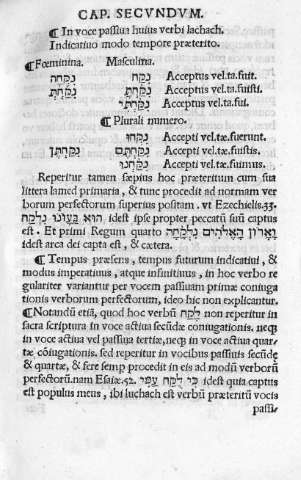 CAP. SECVNDVM.
¶ In voce passiua huius verbi lachach.
Indicatiuo modo tempore præterito.
¶ Fœminina. Masculina.
נִקְּחָה נִקַּח Acceptus vel.ta.fuit.
נִקַּחְתְּ נִקַּחְתָּ Acceptus vel.ta.fuisti.
נִקַּחְתִּי Acceptus vel.ta.fui.
¶ Plurali numero.
נִקְּחוּ Accepti vel.tæ.fuerunt.
נִקַּחְתֶּן נִקַּחְתֶּם Accepti vel.tæ.fuistis.
נִקַּחְנוּ Accepti vel.tæ.fuimus.
Reperitur tamen sæpius hoc præteritum cum sua
littera lamed primaria, & tunc procedit ad normam ver
borum perfectorum superius positam. vt Ezechielis.33.
הוּא בַּעֲוֺנוֹ נִלְקָח idest ipse propter peccatũ suũ captus
est. Et primi Regum quarto וַאֲרוֹן הָאֱלֹהִים נִלְקָחָה
idest arca dei capta est, & cætera.
¶ Tempus præsens, tempus futurum indicatiui, &
modus imperatiuus, atque infinitiuus, in hoc verbo re
gulariter variantur per vocem passiuam primæ coniuga
tionis verborum perfectorum, ideo hic non explicantur.
¶ Notandũ etiã, quod hoc verbũ לָקַח non reperitur in
sacra scriptura in voce actiua secũdæ coniugationis. neq3
in voce actiua vel passiua tertiæ, neq3 in voce actiua quar
tæ cõiugationis. sed reperitur in vocibus passiuis secũdę
& quartæ, & fere semp procedit in eis ad modũ verborũ
perfectorũ. nam Esaiæ.52. כִּי לֻקַּח עַמִּי idest quia captus
est populus meus, ibi luchach est verbũ præteritũ vocis
passi-